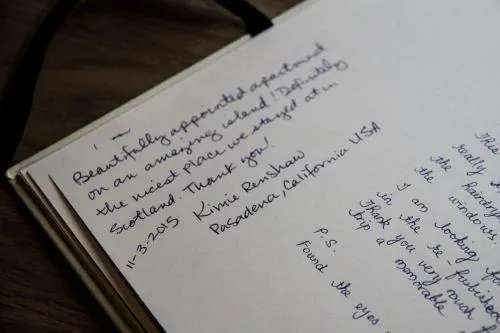 Beautifully appointed apartment
on an amazing island! Definitely
the nicest place we stayed at in
Scotland. Thank you!
Kimie Renshaw
11-3-2015 Pasadena, California USA
This
really
the
the windows.
I am looking
in the re-furbished
Thank you very much
trip a memorable
P.S.
Found the eyes